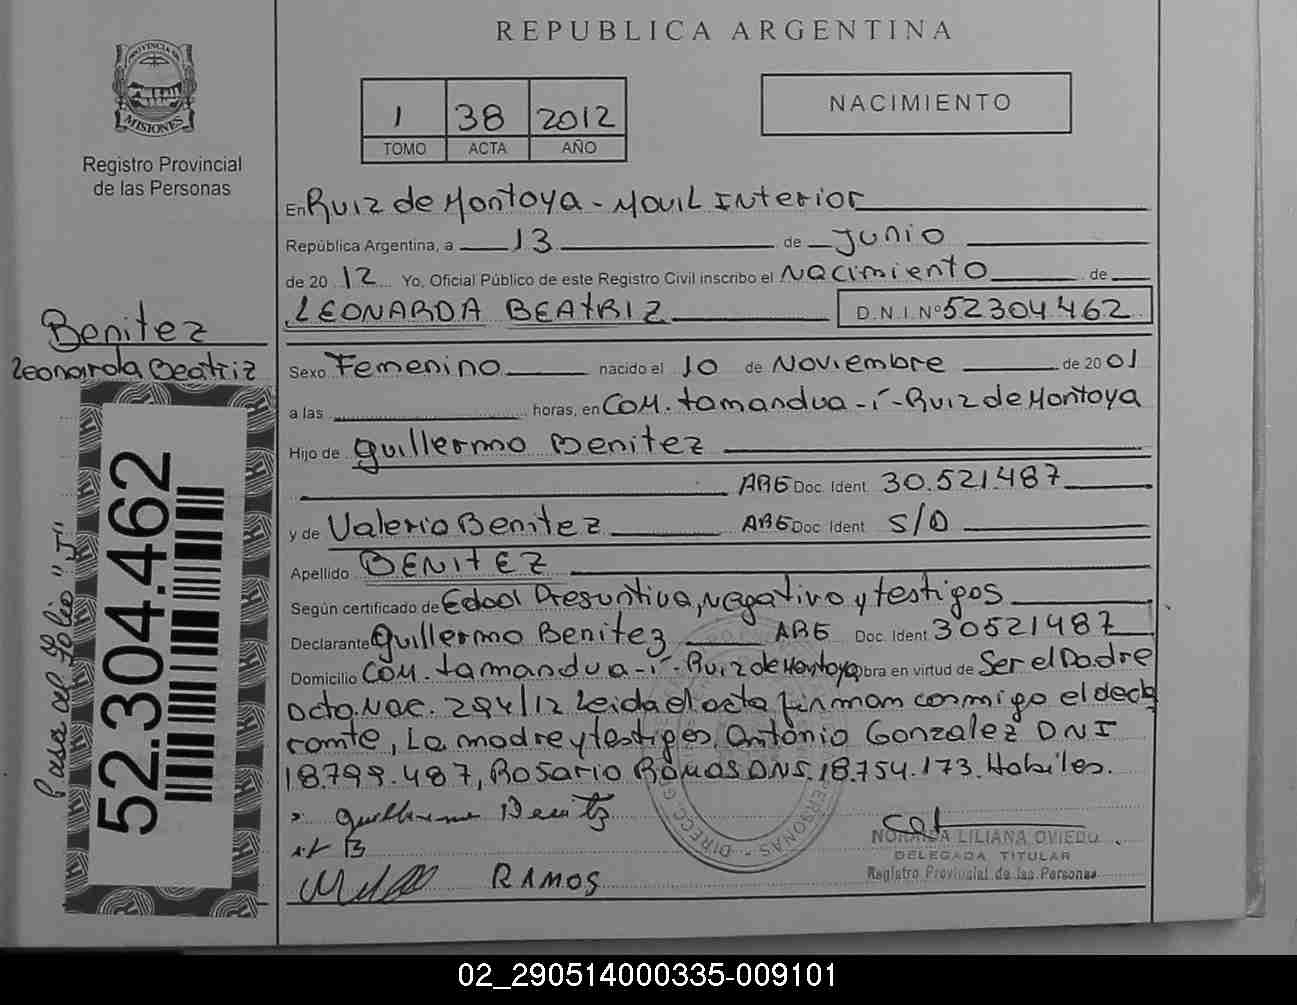 REPUBLICA ARGENTINA
PROVINCIA DE
MISIONES
Registro Provincial
de las Personas
1 38 2012
TOMO ACTA AÑO
NACIMIENTO
En Ruiz de Montoya - Movil Interior
República Argentina, a 13 de Junio
de 20 12 Yo, Oficial Público de este Registro Civil inscribo el Nacimiento de
LEONARDA BEATRIZ D.N.I. Nº 52304.462
Benitez
Leonarda Beatriz
Sexo Femenino nacido el 10 de Noviembre de 20 01
a las horas, en Com. tamandua-í-Ruiz de Montoya
Hijo de Guillermo Benitez
ARG Doc. Ident 30.521.487
y de Valeria Benitez ARG Doc. Ident S/D
Apellido BENITEZ
Según certificado de Edad Presuntiva, negativo y testigos
Declarante Guillermo Benitez ARG Doc. Ident 30521487
Domicilio Com. tamandua-í-Ruiz de Montoya Obra en virtud de Ser el Padre
Dcto. Nac. 294/12 Leida el acta firman conmigo el decla
rante, La madre y testigos, Antonio Gonzalez DNI
18.799.487, Rosario Ramos DNI. 18.754.173. Habiles.
Guillermo Benitz
B
RAMOS
NORAIDA LILIANA OVIEDO
DELEGADA TITULAR
Registro Provincial de las Personas
Pasa al Folio "J"
52.304.462
02_290514000335-009101